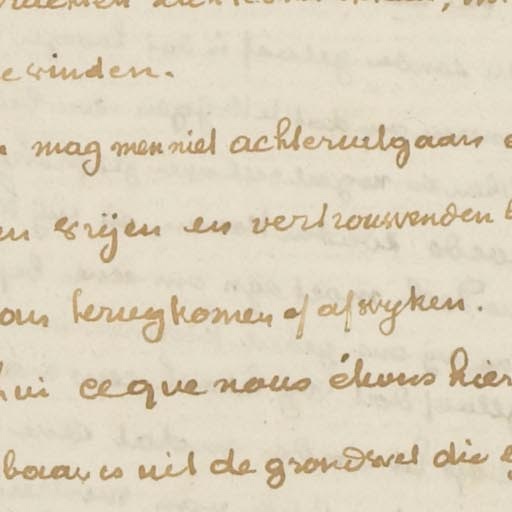 evinden.
mag men niet achteruitgaan
en vrijen en vertrouwenden
terugkomen of afwyken.
ce que nous étions hier
is uit de grondwet die